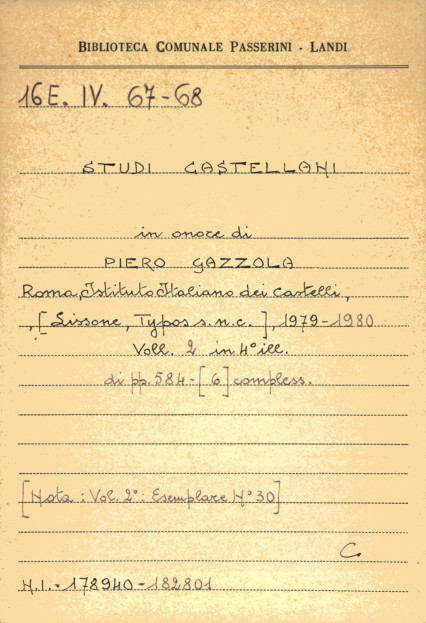 BIBLIOTECA COMUNALE PASSERINI - LANDI
16 E. IV. 67-68
STUDI CASTELLANI
in onore di
PIERO GAZZOLA
Roma, Istituto Italiano dei Castelli,
, [Lissone, Typos s.n.c.], 1979-1980
Voll. 2 in 4° ill.
di pp. 584-[6] compless.
[Nota: Vol. 2°: Esemplare N° 30]
C.
N.I.- 178940-182801